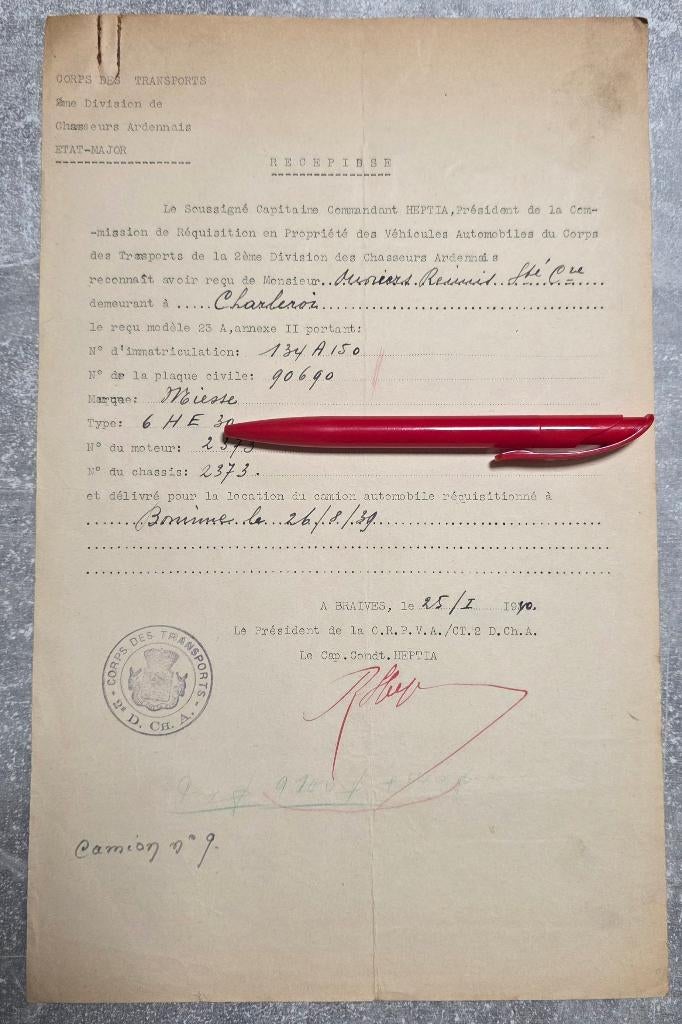 CORPS DES TRANSPORTS
2me Division de
Chasseurs Ardennais
ETAT-MAJOR
RECEPISSE
Le Soussigné Capitaine Commandant HEPTIA, Président de la Com-
-mission de Réquisition en Propriété des Véhicules Automobiles du Corps
des Transports de la 2ème Division des Chasseurs Ardennais
reconnaît avoir reçu de Monsieur.. Ouvriers Réunis Sté Cve
demeurant à ..... Charleroi
le reçu modèle 23 A, annexe II portant:
N° d'immatriculation: 134 A 150
N° de la plaque civile: 90690
Marque: Miesse
Type: 6 H E 30
N° du moteur:
N° du chassis: 2373.
et délivré pour la location du camion automobile réquisitionné à
le 26/8/39
A BRAIVES, le 25/I 1940.
Le Président de la C.R.P.V.A./CT.2 D.Ch.A.
Le Cap.Comdt.HEPTIA
CORPS DES TRANSPORTS
2e D. CH. A.
Camion n° 9.